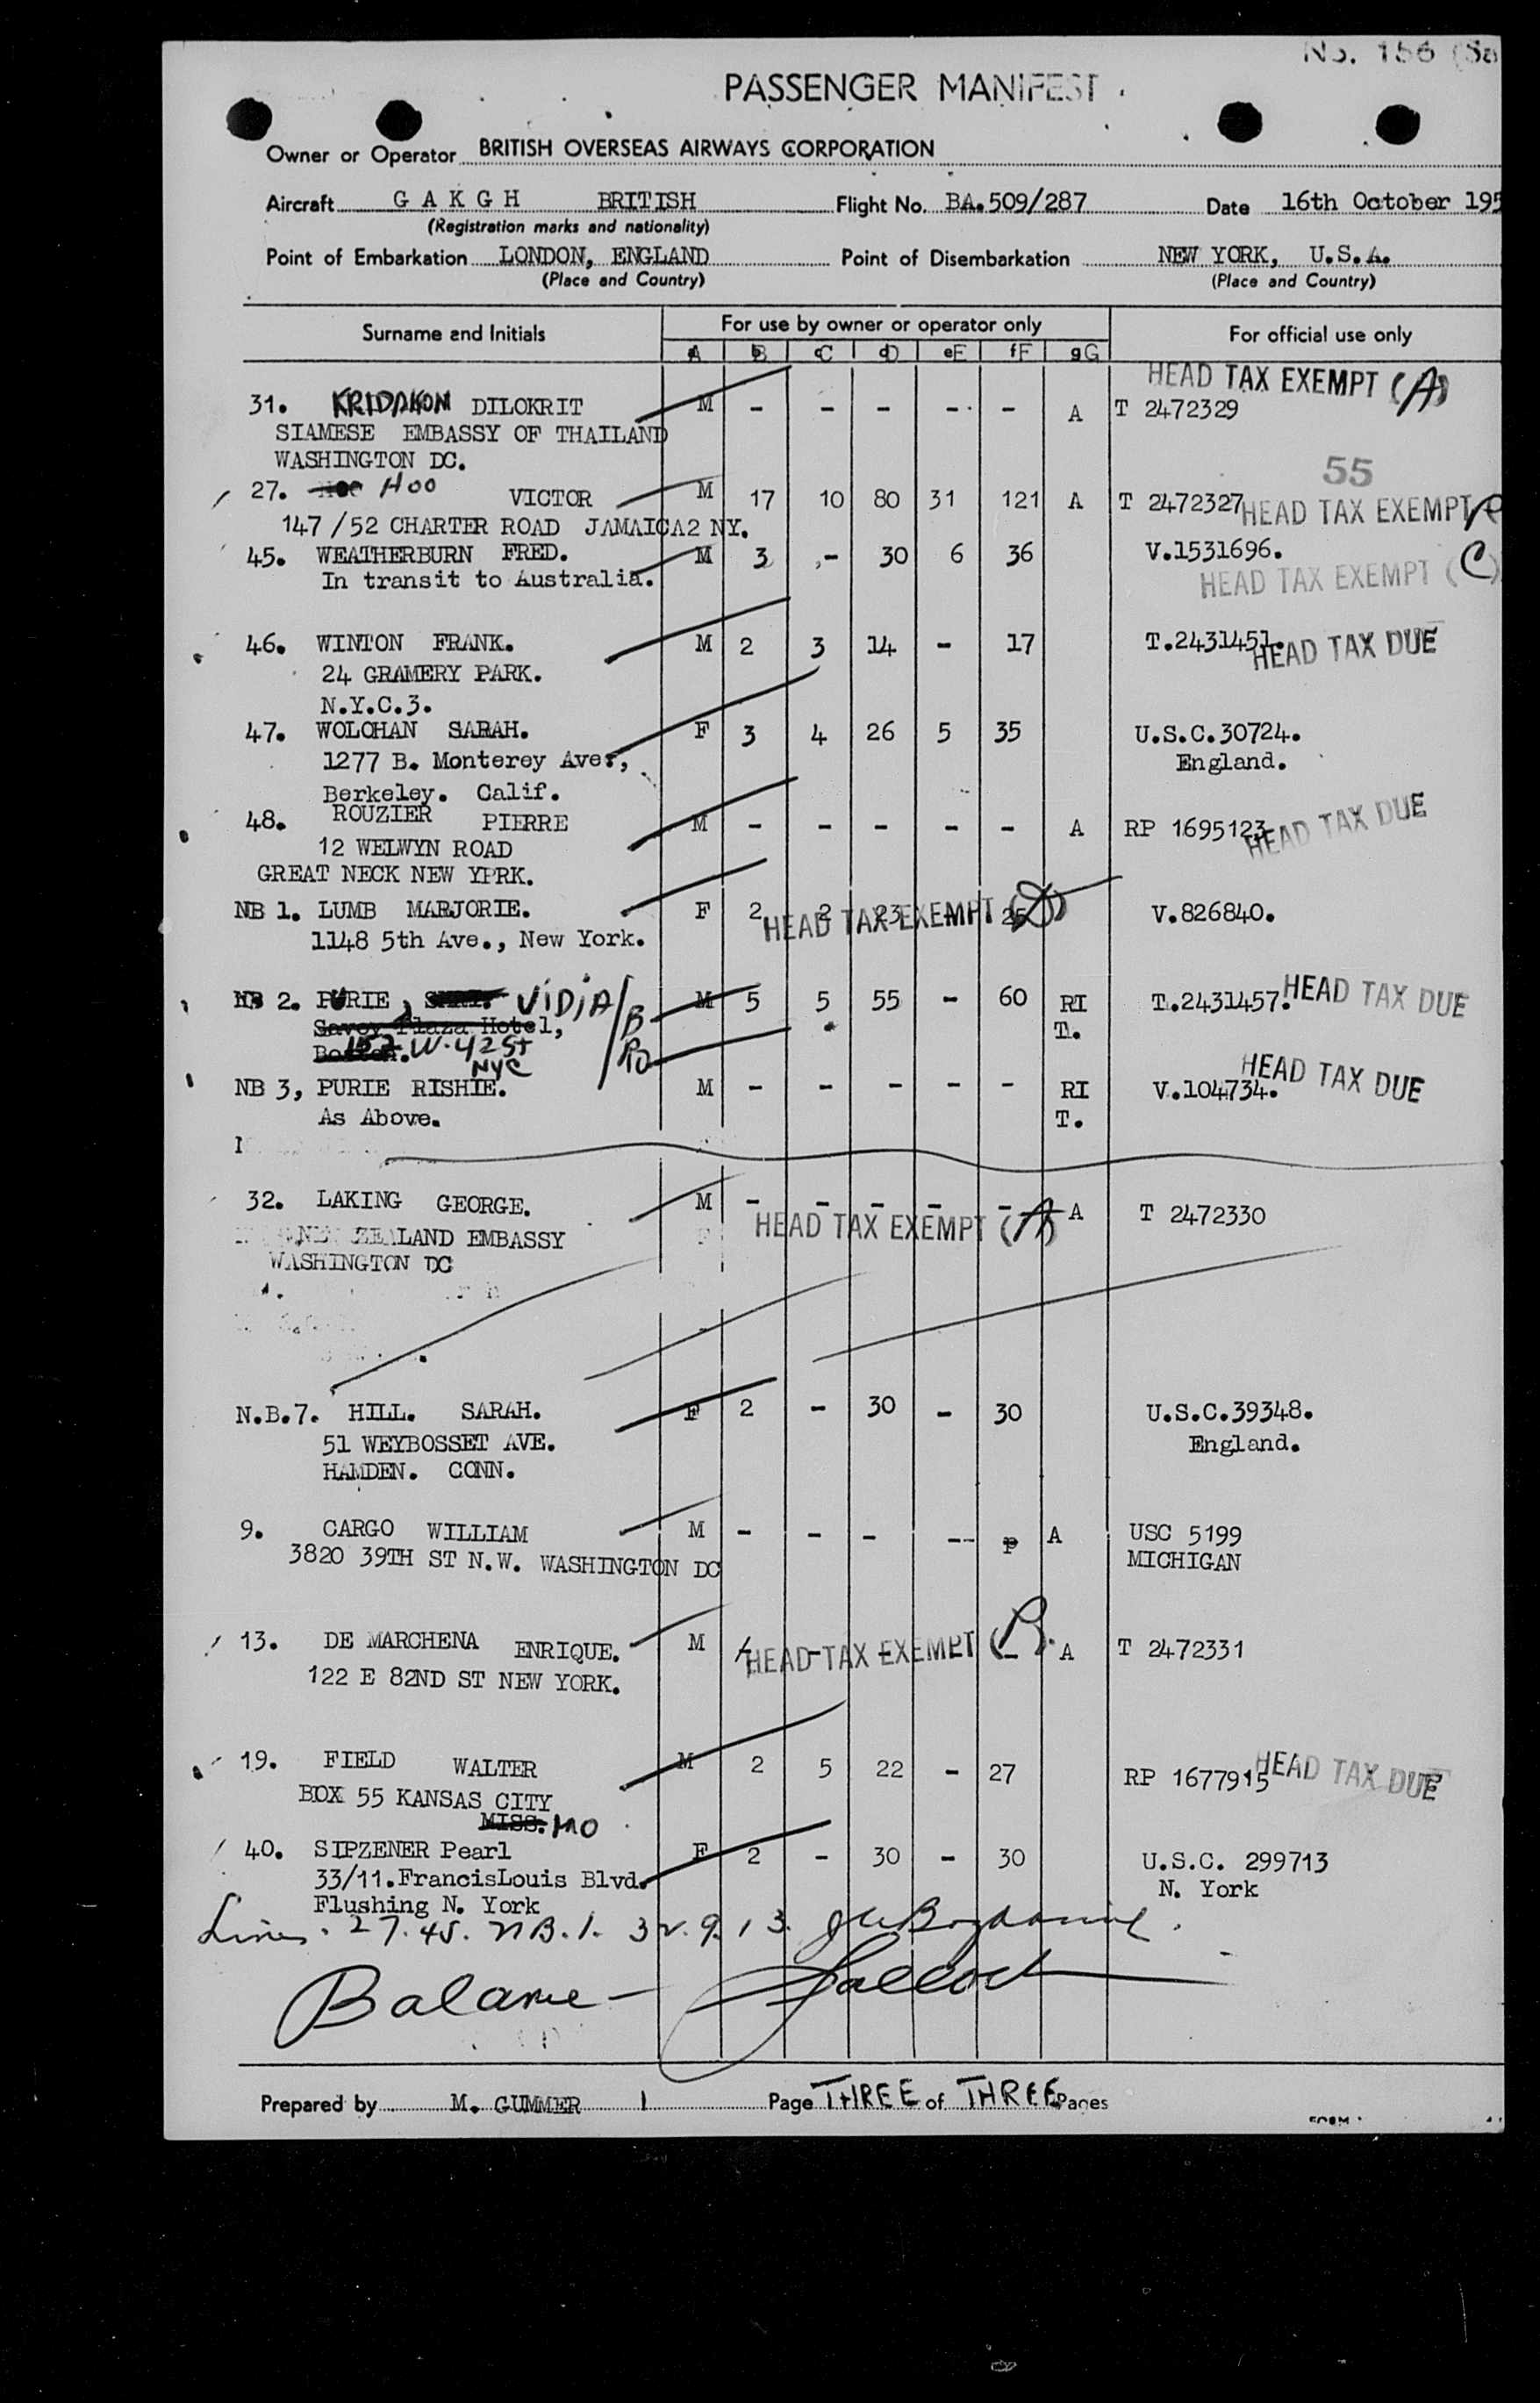 No. 156 (Sa
PASSENGER MANIFEST
Owner or Operator BRITISH OVERSEAS AIRWAYS CORPORATION
Aircraft G A K G H BRITISH Flight No. BA.509/287 Date 16th October 195
(Registration marks and nationality)
Point of Embarkation LONDON, ENGLAND Point of Disembarkation NEW YORK, U.S.A.
(Place and Country) (Place and Country)
Surname and Initials For use by owner or operator only For official use only
A B C D E F G
HEAD TAX EXEMPT (A)
31. KRIDAKON DILOKRIT M - - - - - A T 2472329
SIAMESE EMBASSY OF THAILAND
WASHINGTON DC.
55
27. HOO VICTOR M 17 10 80 31 121 A T 2472327 HEAD TAX EXEMPT
147/52 CHARTER ROAD JAMAICA2 NY.
45. WEATHERBURN FRED. M 3 - 30 6 36 V.1531696.
In transit to Australia. HEAD TAX EXEMPT (C)
46. WINTON FRANK. M 2 3 14 - 17 T.2431451. HEAD TAX DUE
24 GRAMERY PARK.
N.Y.C.3.
47. WOLOHAN SARAH. F 3 4 26 5 35 U.S.C.30724.
1277 B. Monterey Ave, England.
Berkeley. Calif.
48. ROUZIER PIERRE M - - - - - A RP 1695123 HEAD TAX DUE
12 WELWYN ROAD
GREAT NECK NEW YPRK.
NB 1. LUMB MARJORIE. F 2 2 23 - 25 V.826840.
HEAD TAX EXEMPT (D)
1148 5th Ave., New York.
NB 2. PURIE, VIDIA M 5 5 55 - 60 RI T. T.2431457. HEAD TAX DUE
Savoy Plaza Hotel,
Boston. 152 W. 42 St
NYC
NB 3, PURIE RISHIE. M - - - - - RI T. V.104734. HEAD TAX DUE
As Above.
32. LAKING GEORGE. M - - - - - A T 2472330
HEAD TAX EXEMPT (A)
NEW ZEALAND EMBASSY
WASHINGTON DC
N.B.7. HILL. SARAH. F 2 - 30 - 30 U.S.C.39348.
51 WEYBOSSET AVE. England.
HAMDEN. CONN.
9. CARGO WILLIAM M - - - -- p A USC 5199
3820 39TH ST N.W. WASHINGTON DC MICHIGAN
13. DE MARCHENA ENRIQUE. M HEAD TAX EXEMPT A T 2472331
122 E 82ND ST NEW YORK.
19. FIELD WALTER M 2 5 22 - 27 RP 1677915 HEAD TAX DUE
BOX 55 KANSAS CITY
MISS. MO
40. SIPZENER Pearl F 2 - 30 - 30 U.S.C. 299713
33/11.FrancisLouis Blvd. N. York
Flushing N. York
Lines. 27. 45. NB.1. 32. 9. 13.
Balance -
Prepared by M. GUMMER Page THREE of THREE Pages
FORM